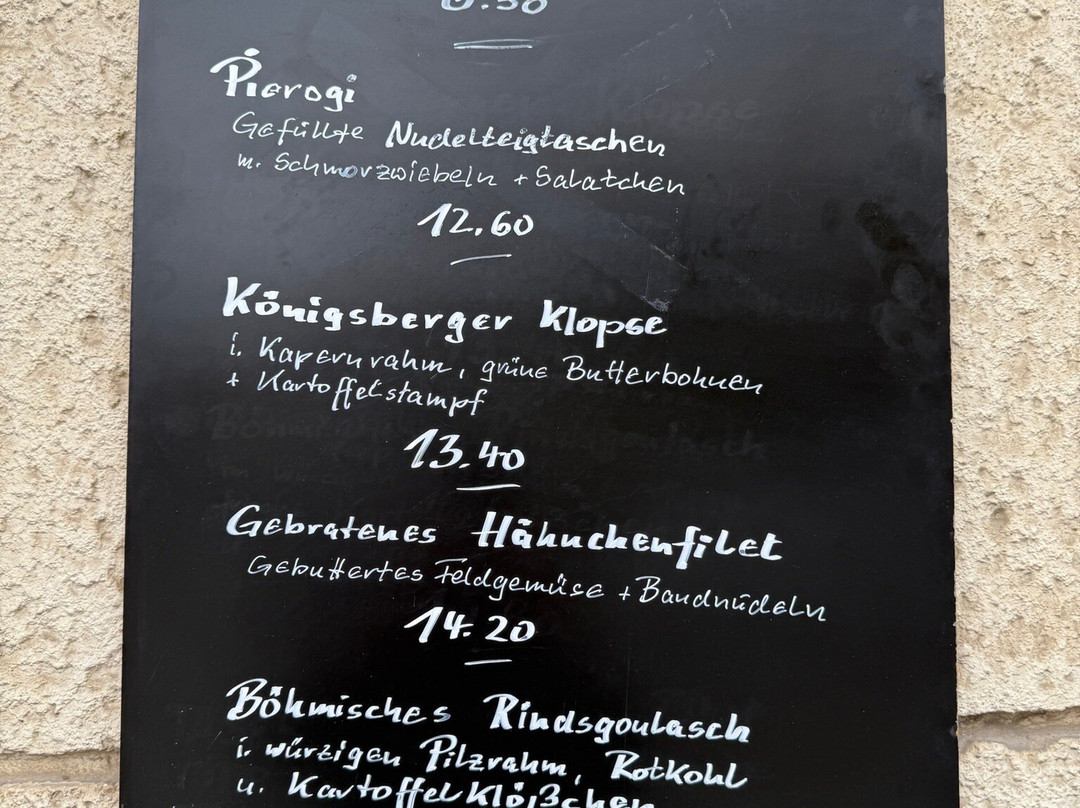 Pierogi
Gefüllte Nudelteigtaschen
m. Schmorzwiebeln + Salatchen
12.60
Königsberger Klopse
i. Kapernrahm, grüne Butterbohnen
+ Kartoffelstampf
13.40
Gebratenes Hähnchenfilet
Gebuttertes Feldgemüse + Bandnudeln
14.20
Böhmisches Rindsgoulasch
i. würzigen Pilzrahm, Rotkohl
u. Kartoffelklößchen